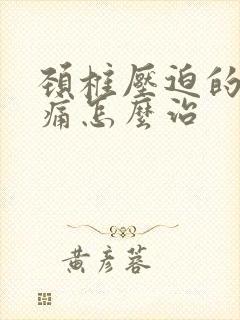 頸柱壓迫的
痛怎麼治
黃彥蓉